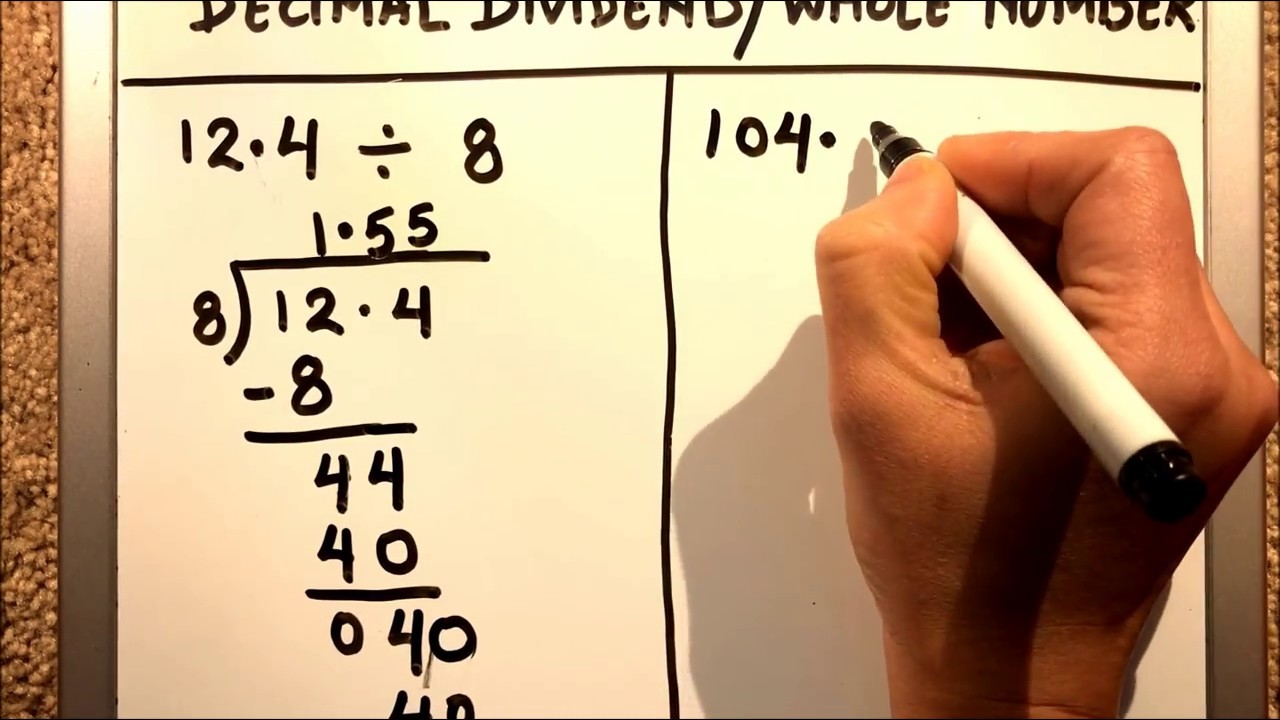 DECIMAL DIVIDEND/WHOLE NUMBER
12.4 ÷ 8
1.55
8)12.4
-8
44
40
040
40
104.